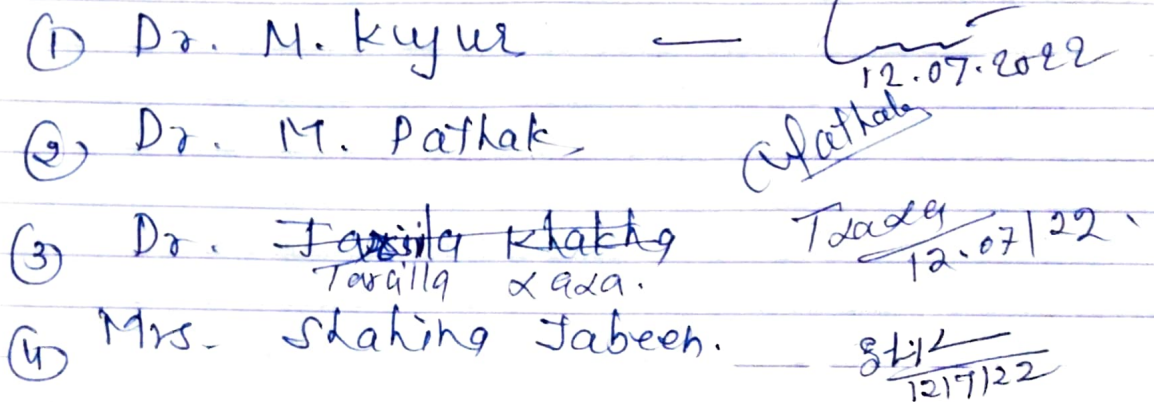 ① Dr. M. Kujur — 12.07.2022
② Dr. M. Pathak Pathak
③ Dr. Khakha 12.07/22
Tarcilla xaxa.
④ Mrs. Shahina Jabeen. 12/7/22